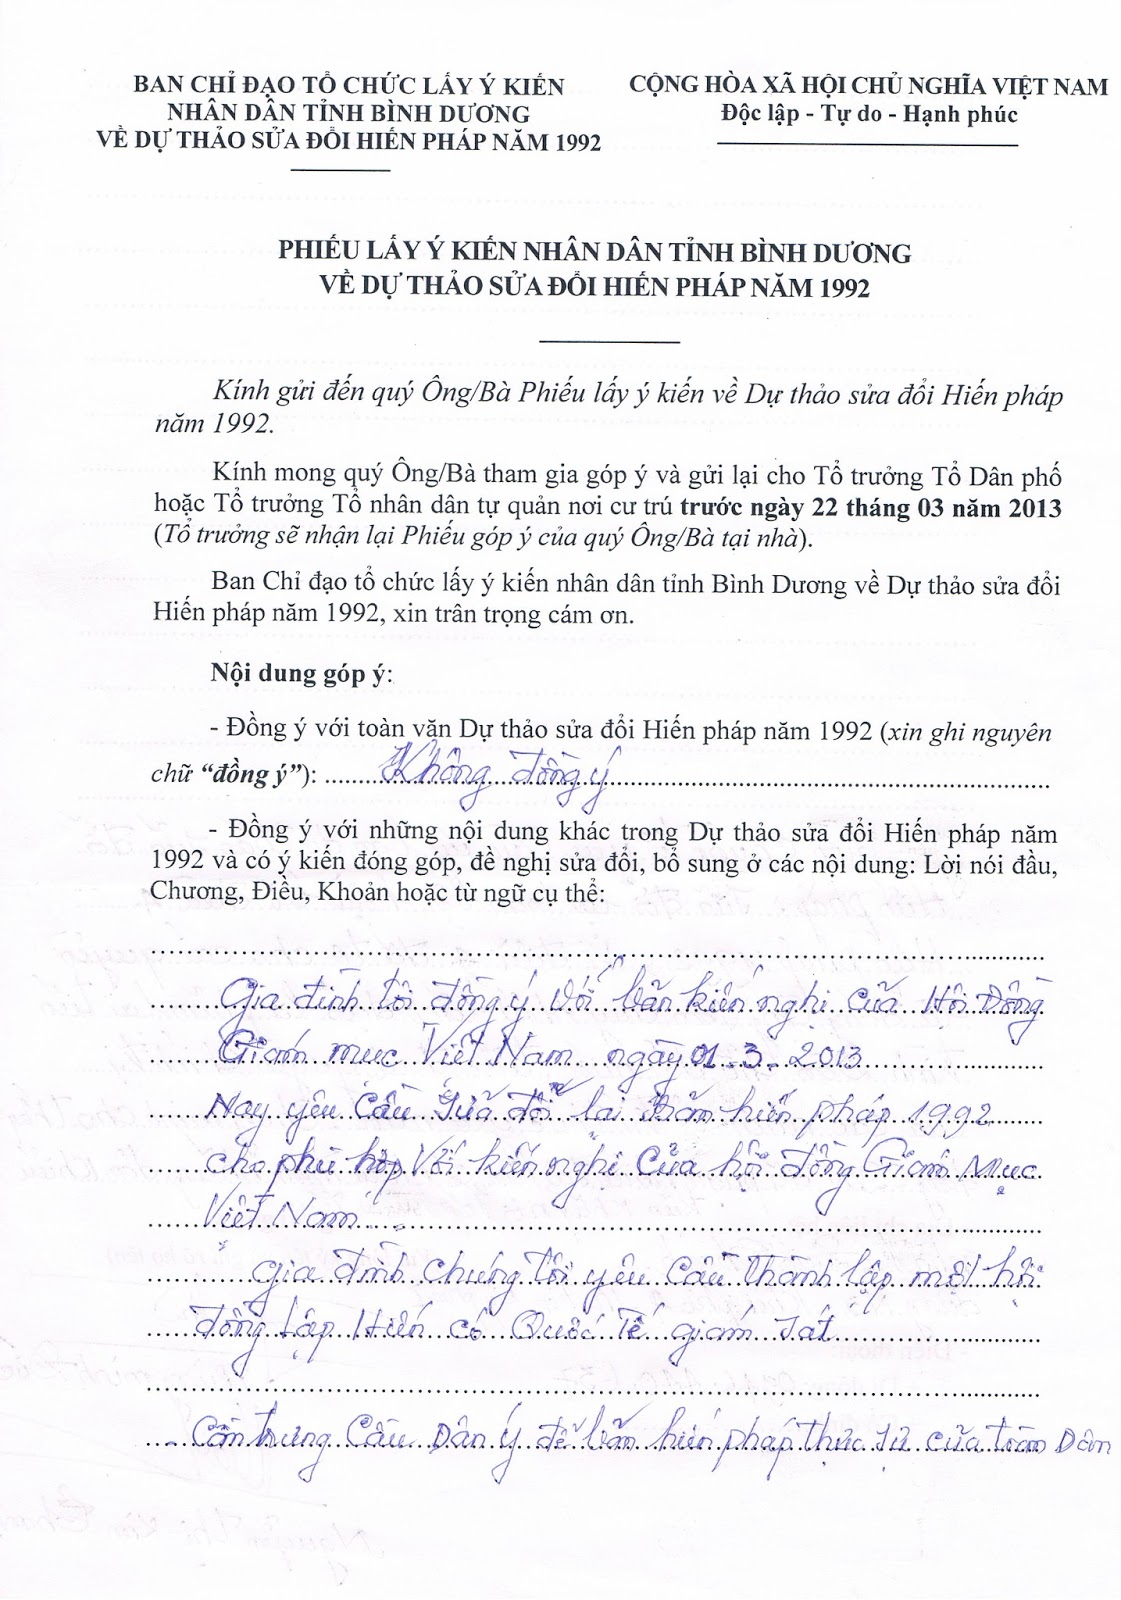 BAN CHỈ ĐẠO TỔ CHỨC LẤY Ý KIẾN
NHÂN DÂN TỈNH BÌNH DƯƠNG
VỀ DỰ THẢO SỬA ĐỔI HIẾN PHÁP NĂM 1992
CỘNG HÒA XÃ HỘI CHỦ NGHĨA VIỆT NAM
Độc lập - Tự do - Hạnh phúc
PHIẾU LẤY Ý KIẾN NHÂN DÂN TỈNH BÌNH DƯƠNG
VỀ DỰ THẢO SỬA ĐỔI HIẾN PHÁP NĂM 1992
Kính gửi đến quý Ông/Bà Phiếu lấy ý kiến về Dự thảo sửa đổi Hiến pháp
năm 1992.
Kính mong quý Ông/Bà tham gia góp ý và gửi lại cho Tổ trưởng Tổ Dân phố
hoặc Tổ trưởng Tổ nhân dân tự quản nơi cư trú trước ngày 22 tháng 03 năm 2013
(Tổ trưởng sẽ nhận lại Phiếu góp ý của quý Ông/Bà tại nhà).
Ban Chỉ đạo tổ chức lấy ý kiến nhân dân tỉnh Bình Dương về Dự thảo sửa đổi
Hiến pháp năm 1992, xin trân trọng cám ơn.
Nội dung góp ý:
- Đồng ý với toàn văn Dự thảo sửa đổi Hiến pháp năm 1992 (xin ghi nguyên
chữ “đồng ý”): Không đồng ý
- Đồng ý với những nội dung khác trong Dự thảo sửa đổi Hiến pháp năm
1992 và có ý kiến đóng góp, đề nghị sửa đổi, bổ sung ở các nội dung: Lời nói đầu,
Chương, Điều, Khoản hoặc từ ngữ cụ thể:
Gia đình tôi đồng ý với bản kiến nghị của Hội Đồng
Giám mục Việt Nam ngày 01-3-2013
Nay yêu cầu sửa đổi lại bản hiến pháp 1992
cho phù hợp với kiến nghị của hội đồng Giám Mục
Việt Nam
Gia đình chúng tôi yêu cầu thành lập một hội
đồng lập Hiến có Quốc Tế giám sát
Cần trưng Cầu Dân ý để bản hiến pháp thực sự của toàn Dân